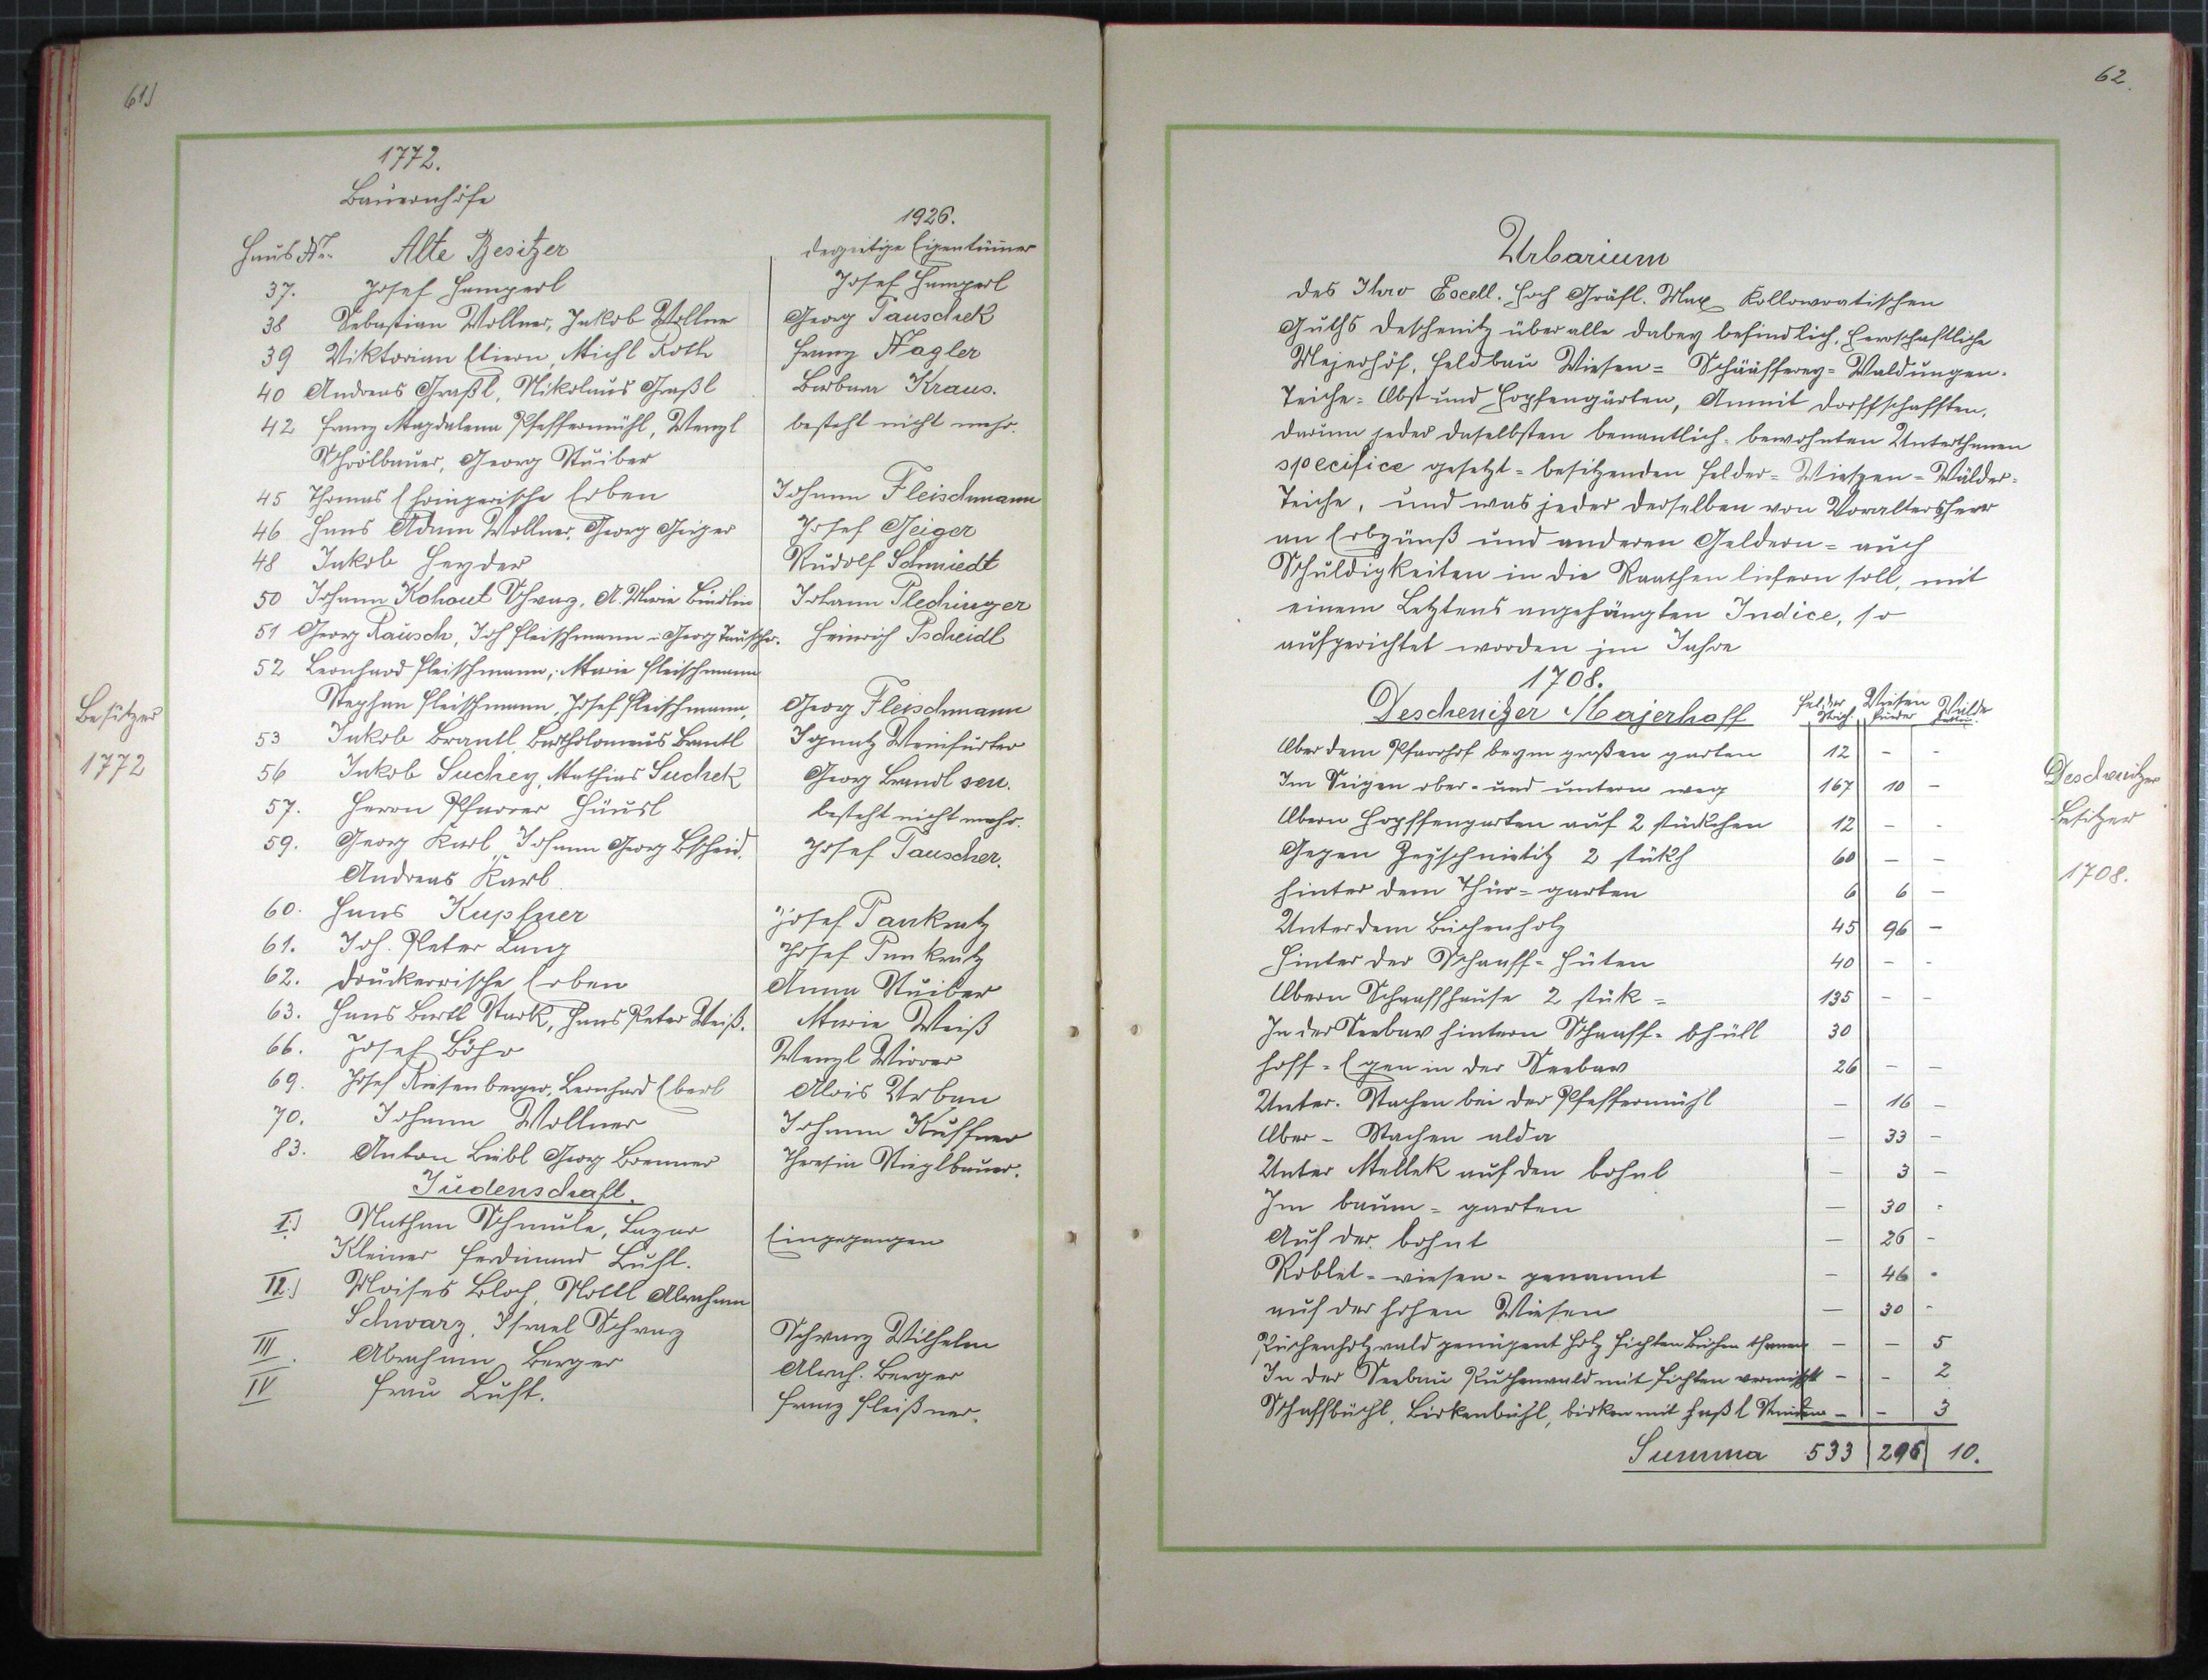 61.)
1772.
Bauernhöfe
1926.
Haus Nr. Alte Besitzer derzeitige Eigentümer
37. Josef Hamperl Josef Hamperl
38 Sebastian Vollner, Jakob Vollner Georg Tauschek
39 Viktorian Michl Roth Franz Nagler
40 Andreas Graßl, Nikolaus Graßl Barbara Kraus.
42 Franz Magdalena Pfeffermühl, Wenzl besteht nicht mehr.
Schrölbauer, Georg Stuiber
45 Thomas Erben Johann Fleischmann
46 Hans Adam Vollner, Georg Geiger Josef Geiger
48 Jakob Heyder Rudolf Schmiedt
50 Johann Kohout Schwarz, A. Marie Bindlin Johann Plechinger
51 Georg Rausch, Joh Fleischmann u Georg Tauscher. Heinrich Pscheidl
52 Leonhard Fleischmann, Marie Fleischmann
Stephan Fleischmann, Josef Fleischmann, Georg Fleischmann
53 Jakob Brantl, Bartholomeus Brantl Ignatz Weinfurter
Besitzer
1772
56 Jakob Suchey, Mathias Suchek Georg Brandl sen.
57. Herrn Pfarrer Häusl besteht nicht mehr.
59. Georg Karl, Johann Georg Bscheid, Josef Tauscher.
Andreas Karl
60. Hans Kupfner Josef Pankratz
61. Joh. Peter Lang Josef Pankratz
62. Druckerrische Erben Anna Stuiber
63. Hans Bartl Stark, Hans Peter Weiß. Marie Weiß
66. Josef Böhr Wenzl Wirrer
69. Josef Riesenberger, Leonhard Eberl Alois Urban
70. Johann Vollner Johann Kuffner
83. Anton Liebl Georg Brenner Theresia Stieglbauer.
Judenschaft.
I.) Nathan Schmule, Lazar Eingegangen
Kleiner Ferdinand Luft.
II.) Moises Bloch, Abraham
Schwarz, Israel Schwarz Schwarz Wilhelm
III. Abraham Berger Abrah. Berger
IV Frau Luft. Franz Fleißner.
62.
Urbarium
des Ihro Excell. Hoch Gräfl. Max Kollowratischen
Guths Deschenitz über alle dabey befindlich, Herrschaftliche
Mejerhöf, Feldbau Wiesen = Schääfferey = Waldungen.
Teiche = Obst und Hopfengärten, Anmit Dorffschafften,
darinn jeder daselbsten benantlich = bewohnten Unterthanen
specifice gesetzt = besitzenden Felder = Wietzen = Wälder =
Teiche, und was jeder derselben von Voraltershero
an Erbzünß und anderen Geldern = auch
Schuldigkeiten in die Raathen liefern soll, mit
einem Letztens angehängten Indice, so
aufgerichtet worden im Jahre
1708.
Deschenizer Majerhoff Felder Strich. Wiesen Fuder Wälde
Ober dem Pfarrhof beym großen garten 12 - -
Im Seigen ober = und untern weg 167 10 -
Obern Hopffengarten auf 2 stückchen 12 - -
Gegen 2 stükh 60 - -
Hinter dem Thür = garten 6 6 -
Unter dem Buchenholz 45 96 -
Hinter der Schaaff = Hüten 40 - -
Obern Schaaffhause 2 stük = 135 - -
In der Seebav hintern Schaaff = bhüll 30
Hoff = Egen in der Seebav 26 - -
Unter = Stachen bei der Pfeffermühl - 16 -
Ober = Stachen alda - 33 -
Unter Mellek auf den bohnl - 3 -
Im baum = garten - 30 -
Auf der bohnt - 26 -
Roblet = wiesen = genannt - 46 -
auf der hohen Wiesen - 30 -
Buchenholzwald genügent Holz Fichten Buchen thanen - - 5
In der Seebau Buchenwald mit Fichten vermischt - - 2
Schaffbüchl, Birkenbühl, birken mit Haßl Stauden - - 3
Summa 533 296 10.
Deschenitzer
Besitzer
1708.